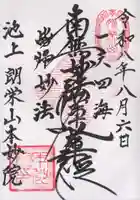 令和八年八月六日
一天四海
南無妙法蓮華経
皆帰妙法
池上 朗栄山本妙院